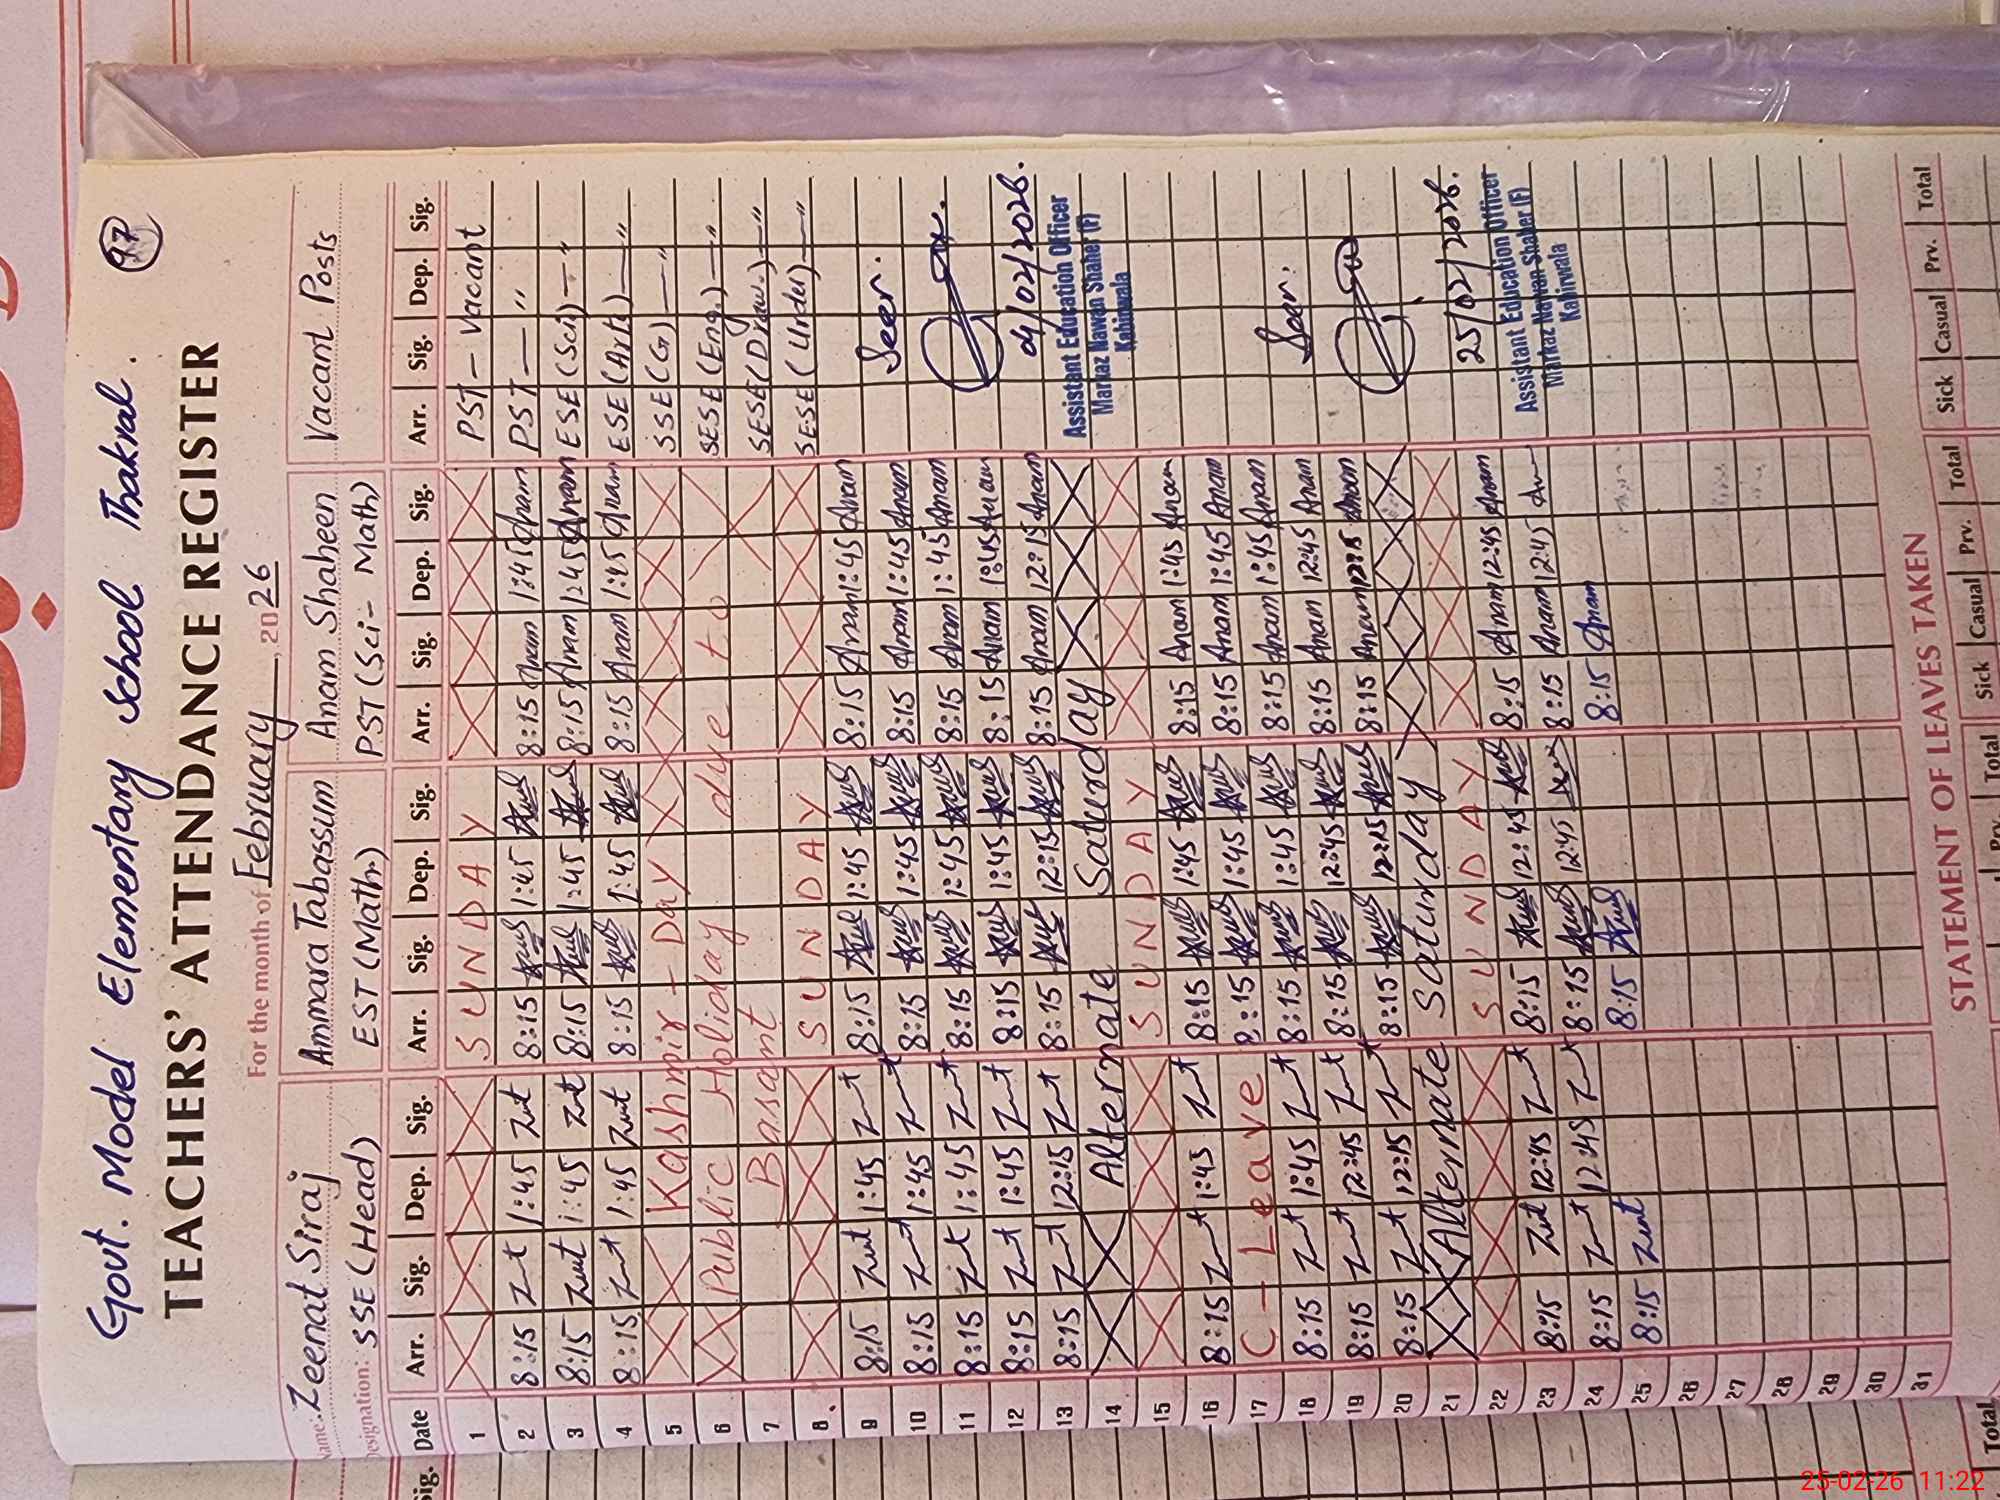 97
Govt. Model Elementary School Thakral.
TEACHERS' ATTENDANCE REGISTER
For the month of February, 2026
Name: Zeenat Siraj Ammara Tabassum Anam Shaheen Vacant Posts
Designation: SSE (Head) EST (Math) PST (Sci - Math)
Date Arr. Sig. Dep. Sig. Arr. Sig. Dep. Sig. Arr. Sig. Dep. Sig. Arr. Sig. Dep. Sig.
1 SUNDAY PST - Vacant
2 8:15 Znt 1:45 Znt 8:15 1:45 8:15 Anam 1:45 Anam PST — "
3 8:15 Znt 1:45 Znt 8:15 1:45 8:15 Anam 1:45 Anam ESE (Sci) - "
4 8:15 Znt 1:45 Znt 8:15 1:45 8:15 Anam 1:45 Anam ESE (Arts) — "
5 Kashmir - Day SSE (G) — "
6 Public Holiday due to SESE (Eng.) — "
7 Basant SESE (Draw.) — "
8 SUNDAY SESE (Urdu) — "
9 8:15 Znt 1:45 Znt 8:15 1:45 8:15 Anam 1:45 Anam
10 8:15 Znt 1:45 Znt 8:15 1:45 8:15 Anam 1:45 Anam Seen.
11 8:15 Znt 1:45 Znt 8:15 1:45 8:15 Anam 1:45 Anam
12 8:15 Znt 1:45 Znt 8:15 1:45 8:15 Anam 1:45 Anam
13 8:15 Znt 12:15 Znt 8:15 12:15 8:15 Anam 12:15 Anam 04/02/2026.
14 Alternate Saturday Assistant Education Officer
Markaz Nawan Shaher (F)
Kabirwala
15 SUNDAY
16 8:15 Znt 1:45 Znt 8:15 1:45 8:15 Anam 1:45 Anam
17 C - Leave 8:15 1:45 8:15 Anam 1:45 Anam
18 8:15 Znt 1:45 Znt 8:15 1:45 8:15 Anam 1:45 Anam Seen.
19 8:15 Znt 12:45 Znt 8:15 12:45 8:15 Anam 12:45 Anam
20 8:15 Znt 12:15 Znt 8:15 12:15 8:15 Anam 12:15 Anam
21 Alternate Saturday
22 SUNDAY 25/02/2026.
23 8:15 Znt 12:45 Znt 8:15 12:45 8:15 Anam 12:45 Anam Assistant Education Officer
Markaz Nawan Shaher (F)
Kabirwala
24 8:15 Znt 12:45 Znt 8:15 12:45 8:15 Anam 12:45
25 8:15 Znt 8:15 8:15 Anam
26
27
28
29
30
31
STATEMENT OF LEAVES TAKEN
Total Sick Casual Prv. Total Sick Casual Prv. Total
25-02-26 11:22